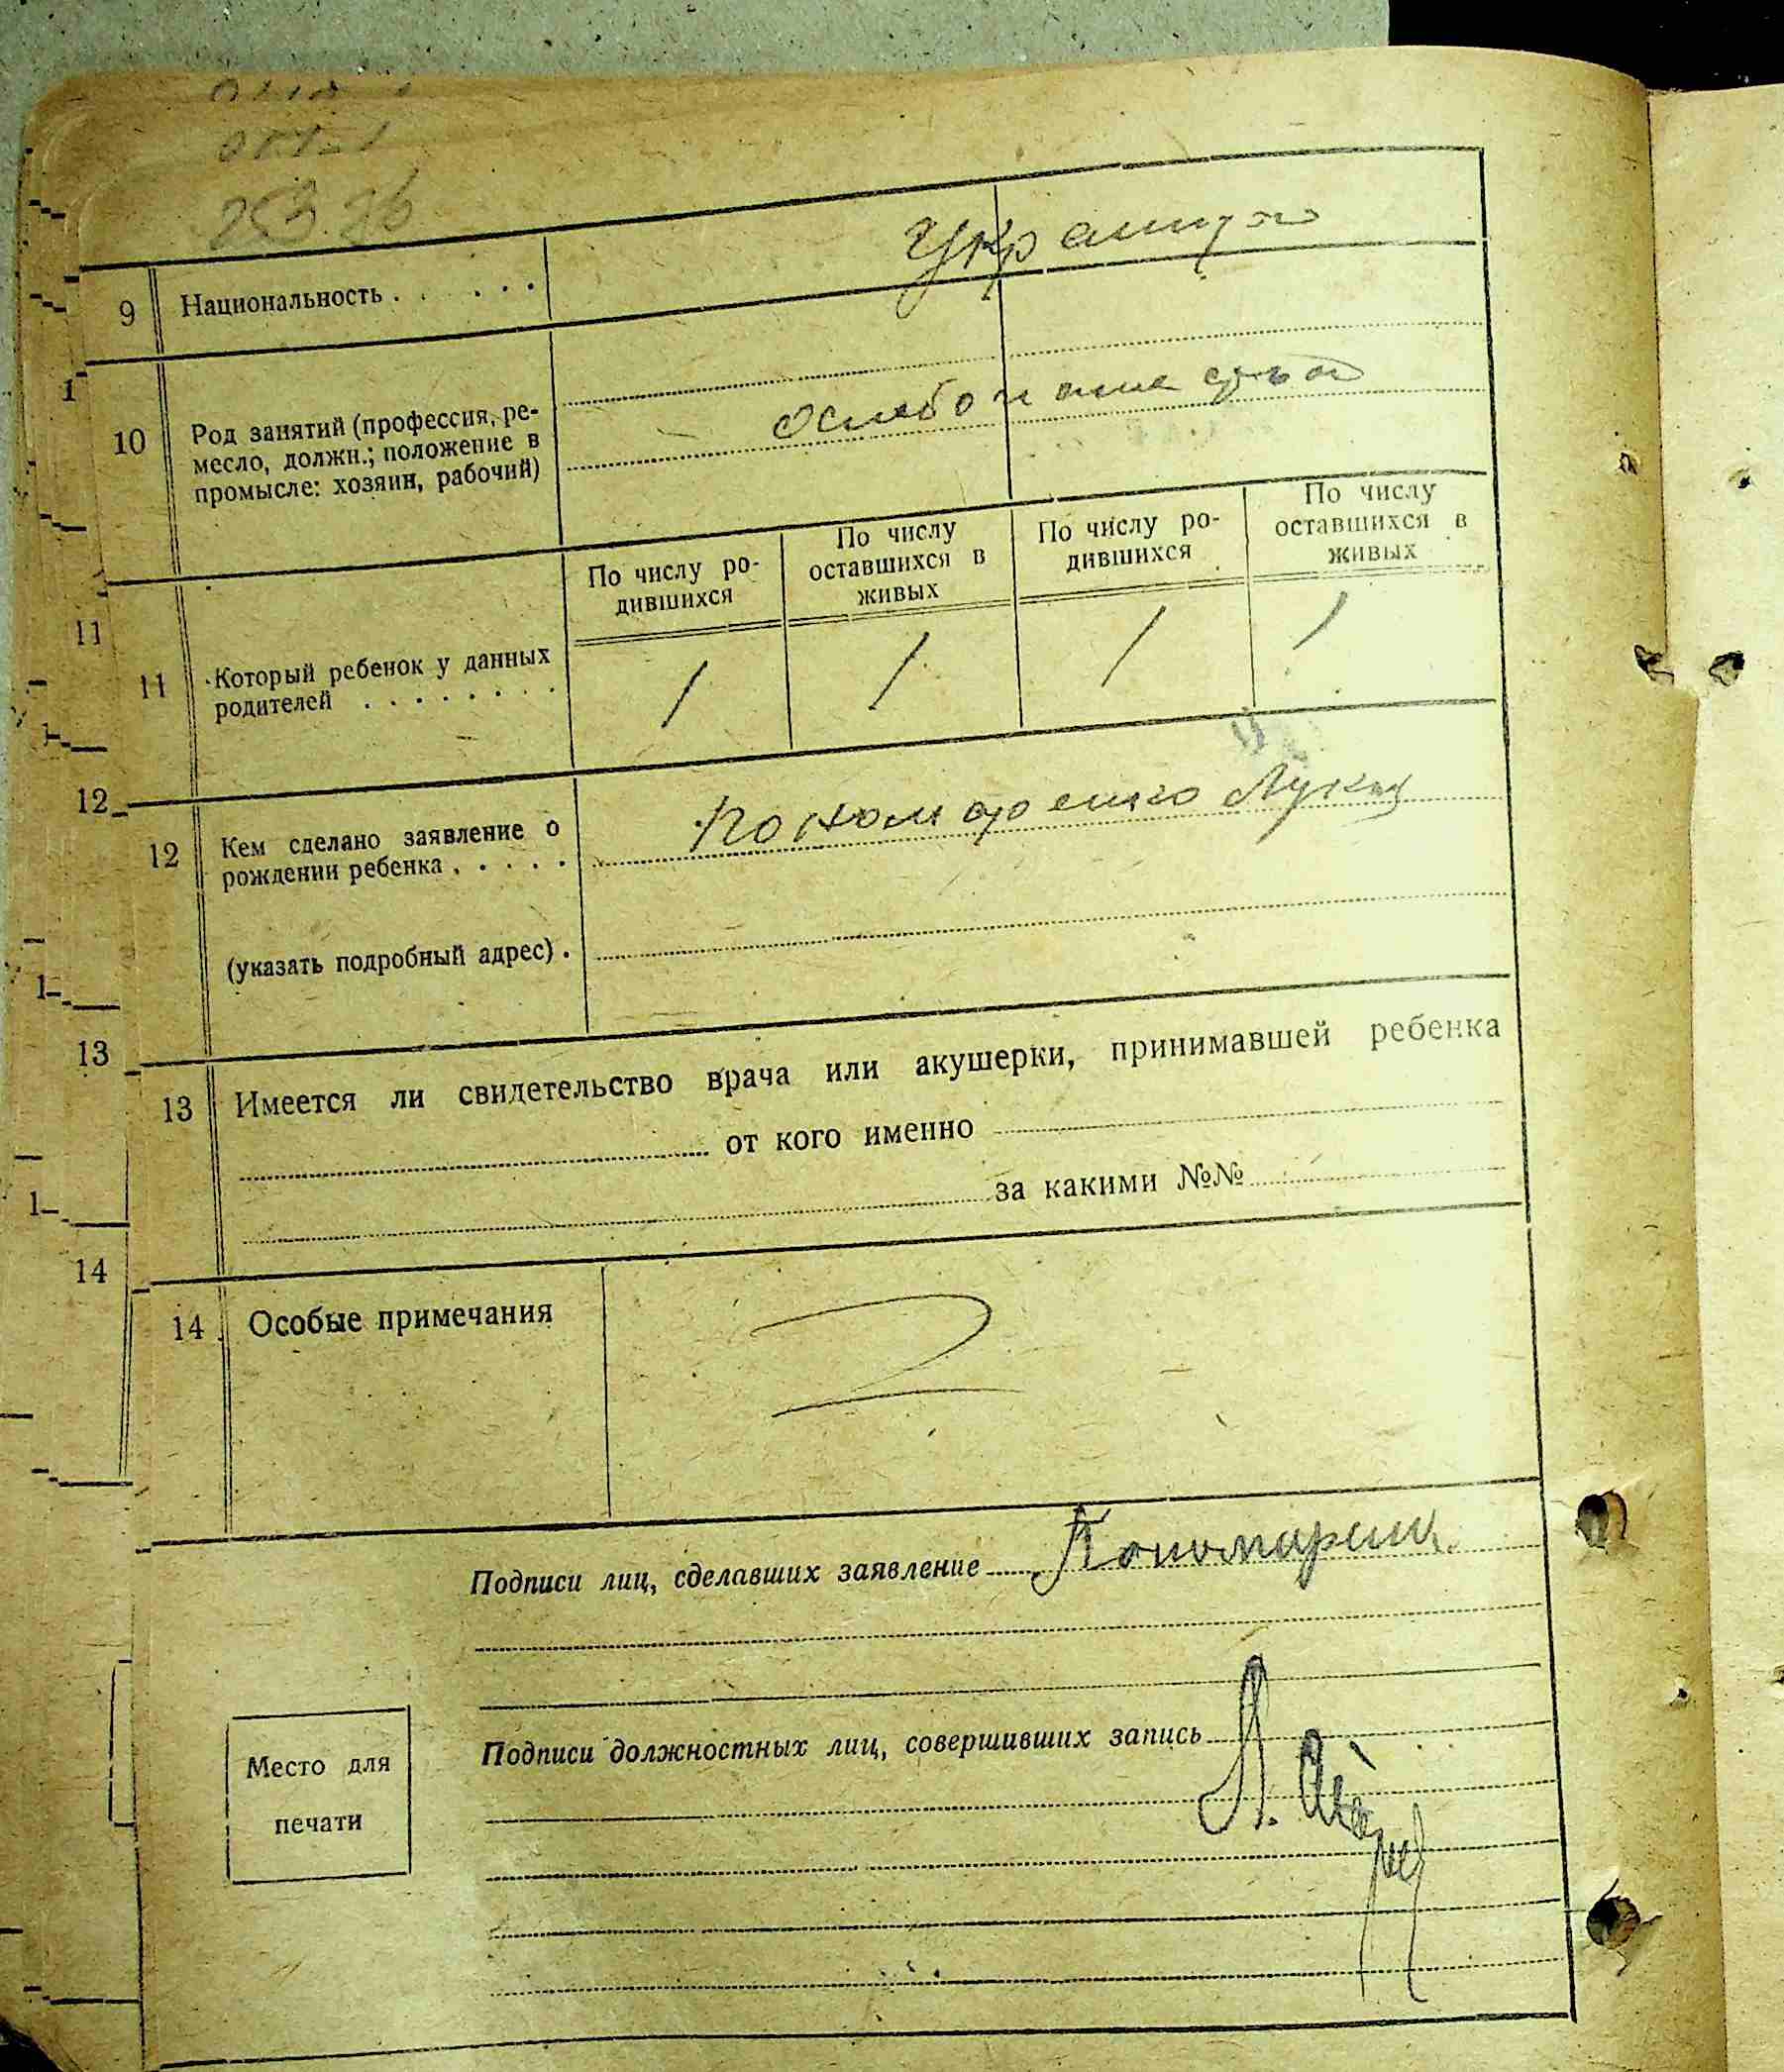 253.26
9 Национальность . . . . . . Украинцы
10 Род занятий (профессия, ре-
месло, должн.; положение в
промысле: хозяин, рабочий)
11 Который ребенок у данных
родителей . . . . . . . .
По числу ро-
дившихся
По числу
оставшихся в
живых
По числу ро-
дившихся
По числу
оставшихся в
живых
1 1 1 1
12 Кем сделано заявление о
рождении ребенка . . . . . Пономаренко Лукия
(указать подробный адрес) .
13 Имеется ли свидетельство врача или акушерки, принимавшей ребенка
от кого именно
за какими №№
14 Особые примечания
Подписи лиц, сделавших заявление Пономарен.
Подписи должностных лиц, совершивших запись
Место для
печати
1
11
12
1
13
1
14